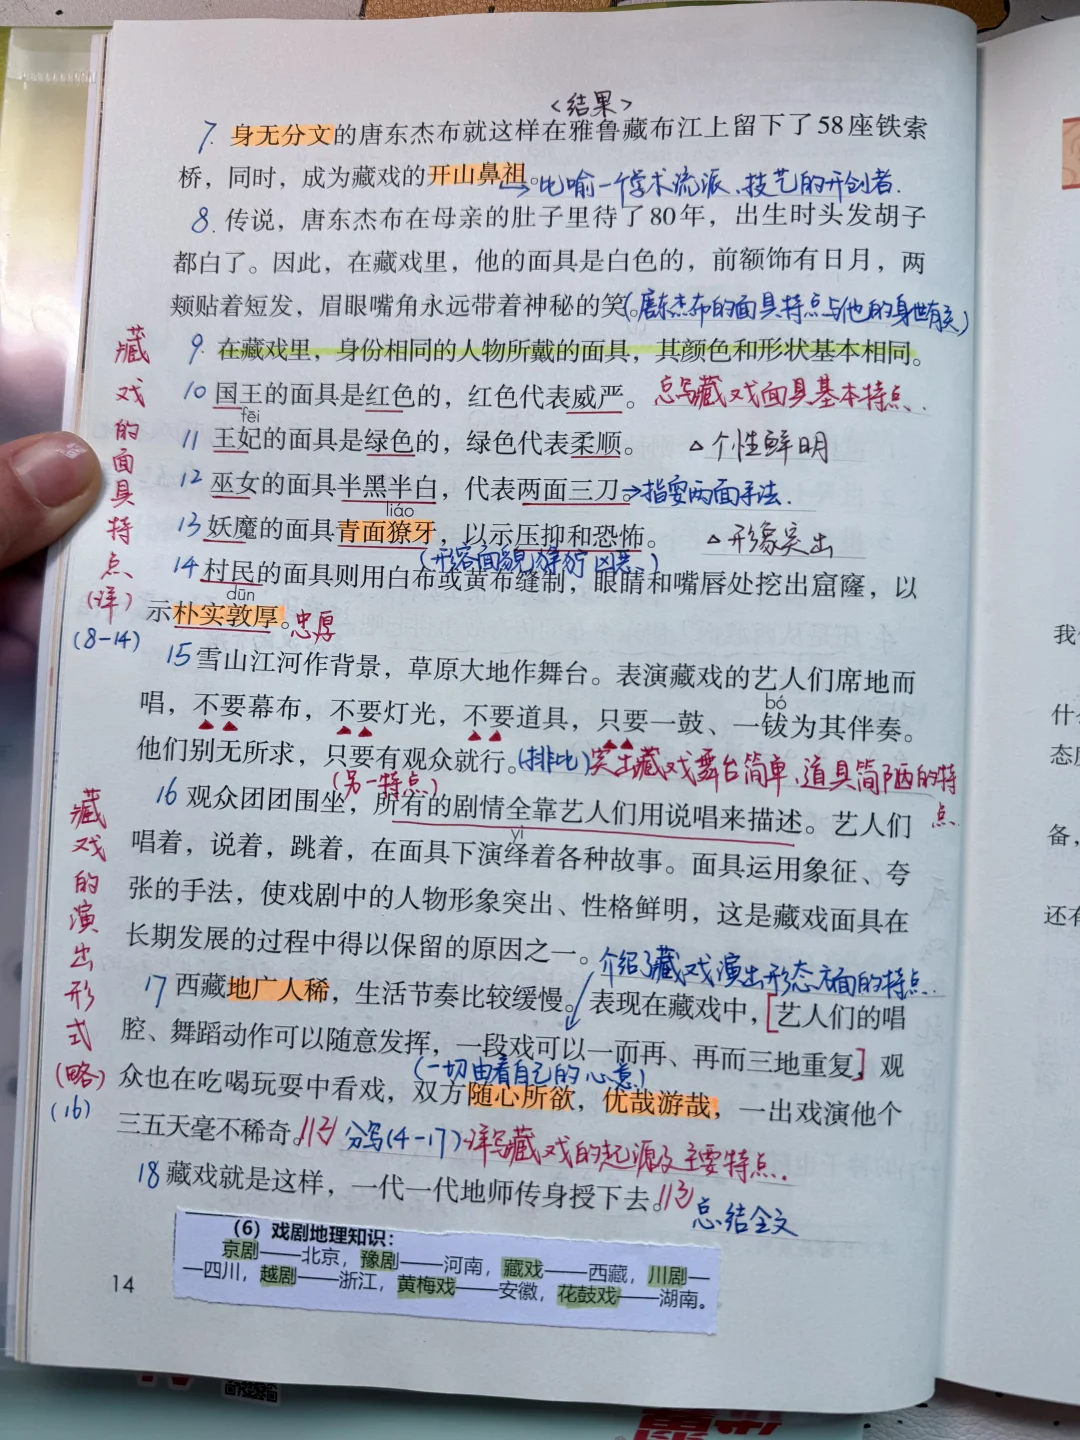 <结果>
7. 身无分文的唐东杰布就这样在雅鲁藏布江上留下了58座铁索
桥，同时，成为藏戏的开山鼻祖。
→比喻一个学术流派、技艺的开创者.
8. 传说，唐东杰布在母亲的肚子里待了80年，出生时头发胡子
都白了。因此，在藏戏里，他的面具是白色的，前额饰有日月，两
颊贴着短发，眉眼嘴角永远带着神秘的笑。(唐东杰布的面具特点与他的身世有关)
藏戏的面具特点(详)
(8-14)
9. 在藏戏里，身份相同的人物所戴的面具，其颜色和形状基本相同。
10 国王的面具是红色的，红色代表威严。总写藏戏面具基本特点.
fēi
11 王妃的面具是绿色的，绿色代表柔顺。 △个性鲜明
12 巫女的面具半黑半白，代表两面三刀。→指耍两面手法.
liáo
13 妖魔的面具青面獠牙，以示压抑和恐怖。 △形象突出
(形容面貌狰狞凶恶.)
14 村民的面具则用白布或黄布缝制，眼睛和嘴唇处挖出窟窿，以
dūn
示朴实敦厚。忠厚
15 雪山江河作背景，草原大地作舞台。表演藏戏的艺人们席地而
bó
唱，不要幕布，不要灯光，不要道具，只要一鼓、一钹为其伴奏。
他们别无所求，只要有观众就行。(排比)突出藏戏舞台简单、道具简陋的特
点.
(另一特点)
藏戏的演出形式(略)
(16)
16 观众团团围坐，所有的剧情全靠艺人们用说唱来描述。艺人们
yì
唱着，说着，跳着，在面具下演绎着各种故事。面具运用象征、夸
张的手法，使戏剧中的人物形象突出、性格鲜明，这是藏戏面具在
长期发展的过程中得以保留的原因之一。
介绍了藏戏演出形态方面的特点.
17 西藏地广人稀，生活节奏比较缓慢。表现在藏戏中，[艺人们的唱
腔、舞蹈动作可以随意发挥，一段戏可以一而再、再而三地重复]观
(一切由着自己的心意)
众也在吃喝玩耍中看戏，双方随心所欲，优哉游哉，一出戏演他个
三五天毫不稀奇。 分写(4-17)详写藏戏的起源及主要特点.
18 藏戏就是这样，一代一代地师传身授下去。
总结全文
(6）戏剧地理知识：
京剧——北京，豫剧——河南，藏戏——西藏，川剧—
—四川，越剧——浙江，黄梅戏——安徽，花鼓戏——湖南。
14
我
什
态度
备，
还有